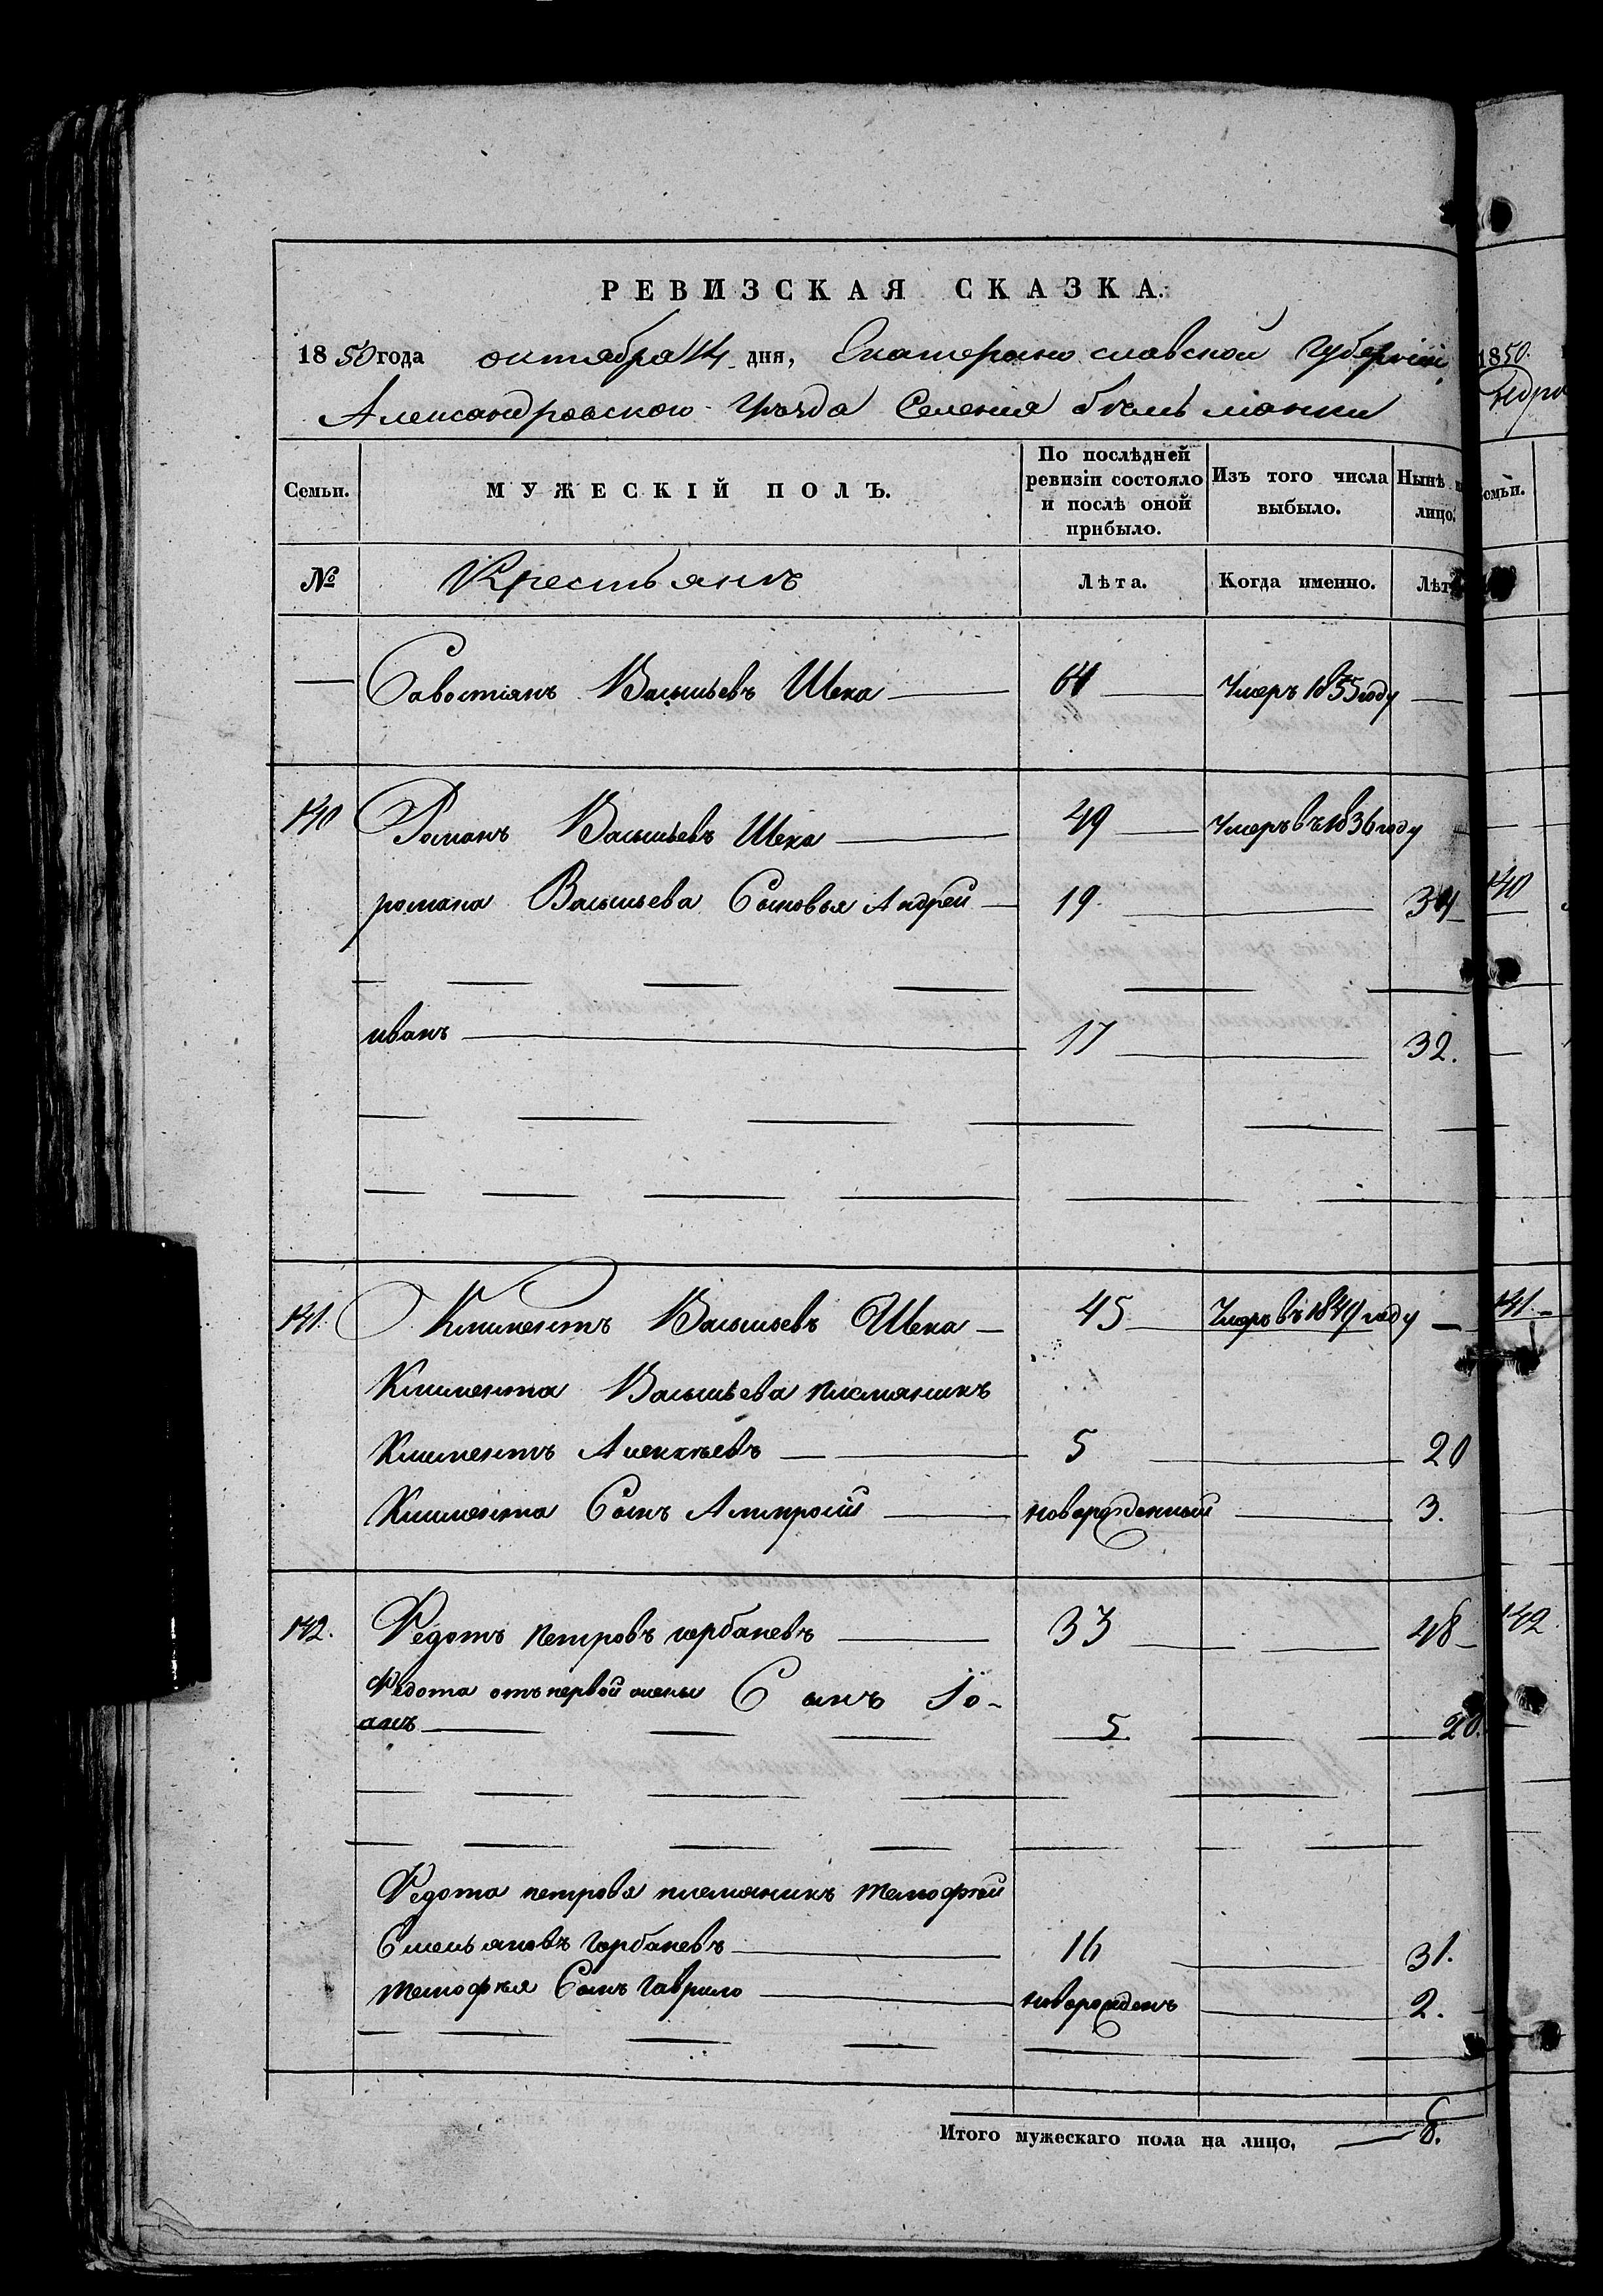 РЕВИЗСКАЯ СКАЗКА.
1850 года октября 14 дня, Екатерино славской губернiи
Александровскою Уѣзда Селенія бѣлъ манки
Семьи. МУЖЕСКІЙ ПОЛЪ. По послѣдней ревизіи состояло и послѣ оной прибыло. Изъ того числа выбыло. Нынѣ на лицо.
№ Крестьянъ Лѣта. Когда именно. Лѣт
— Савостіянъ Васильевъ Шека 64 Умеръ 1835 году
140 Романъ Васильевъ Шека 49 Умеръ въ 1836 году
романа Васильева Сыновья Андрей 19. 34
иванъ 17 32.
141. Климентъ Васильевъ Шека 45 Умеръ въ 1849 году
Климента Васильева племяникъ
Климентъ Алексѣевъ 5 20
Климента Сынъ Амвросій новорожденный 3.
142. Федотъ петровъ горбаневъ 33 48
Федота отъ первой жены Сынъ Іо-
анъ 5. 20.
Федота петрова племяникъ тимофей
Емельяновъ Горбаневъ 16 31.
тимофея Сынъ Гаврило новорожденъ 2.
Итого мужескаго пола на лицо, 8.
1850.
емьи.
140
141.
142